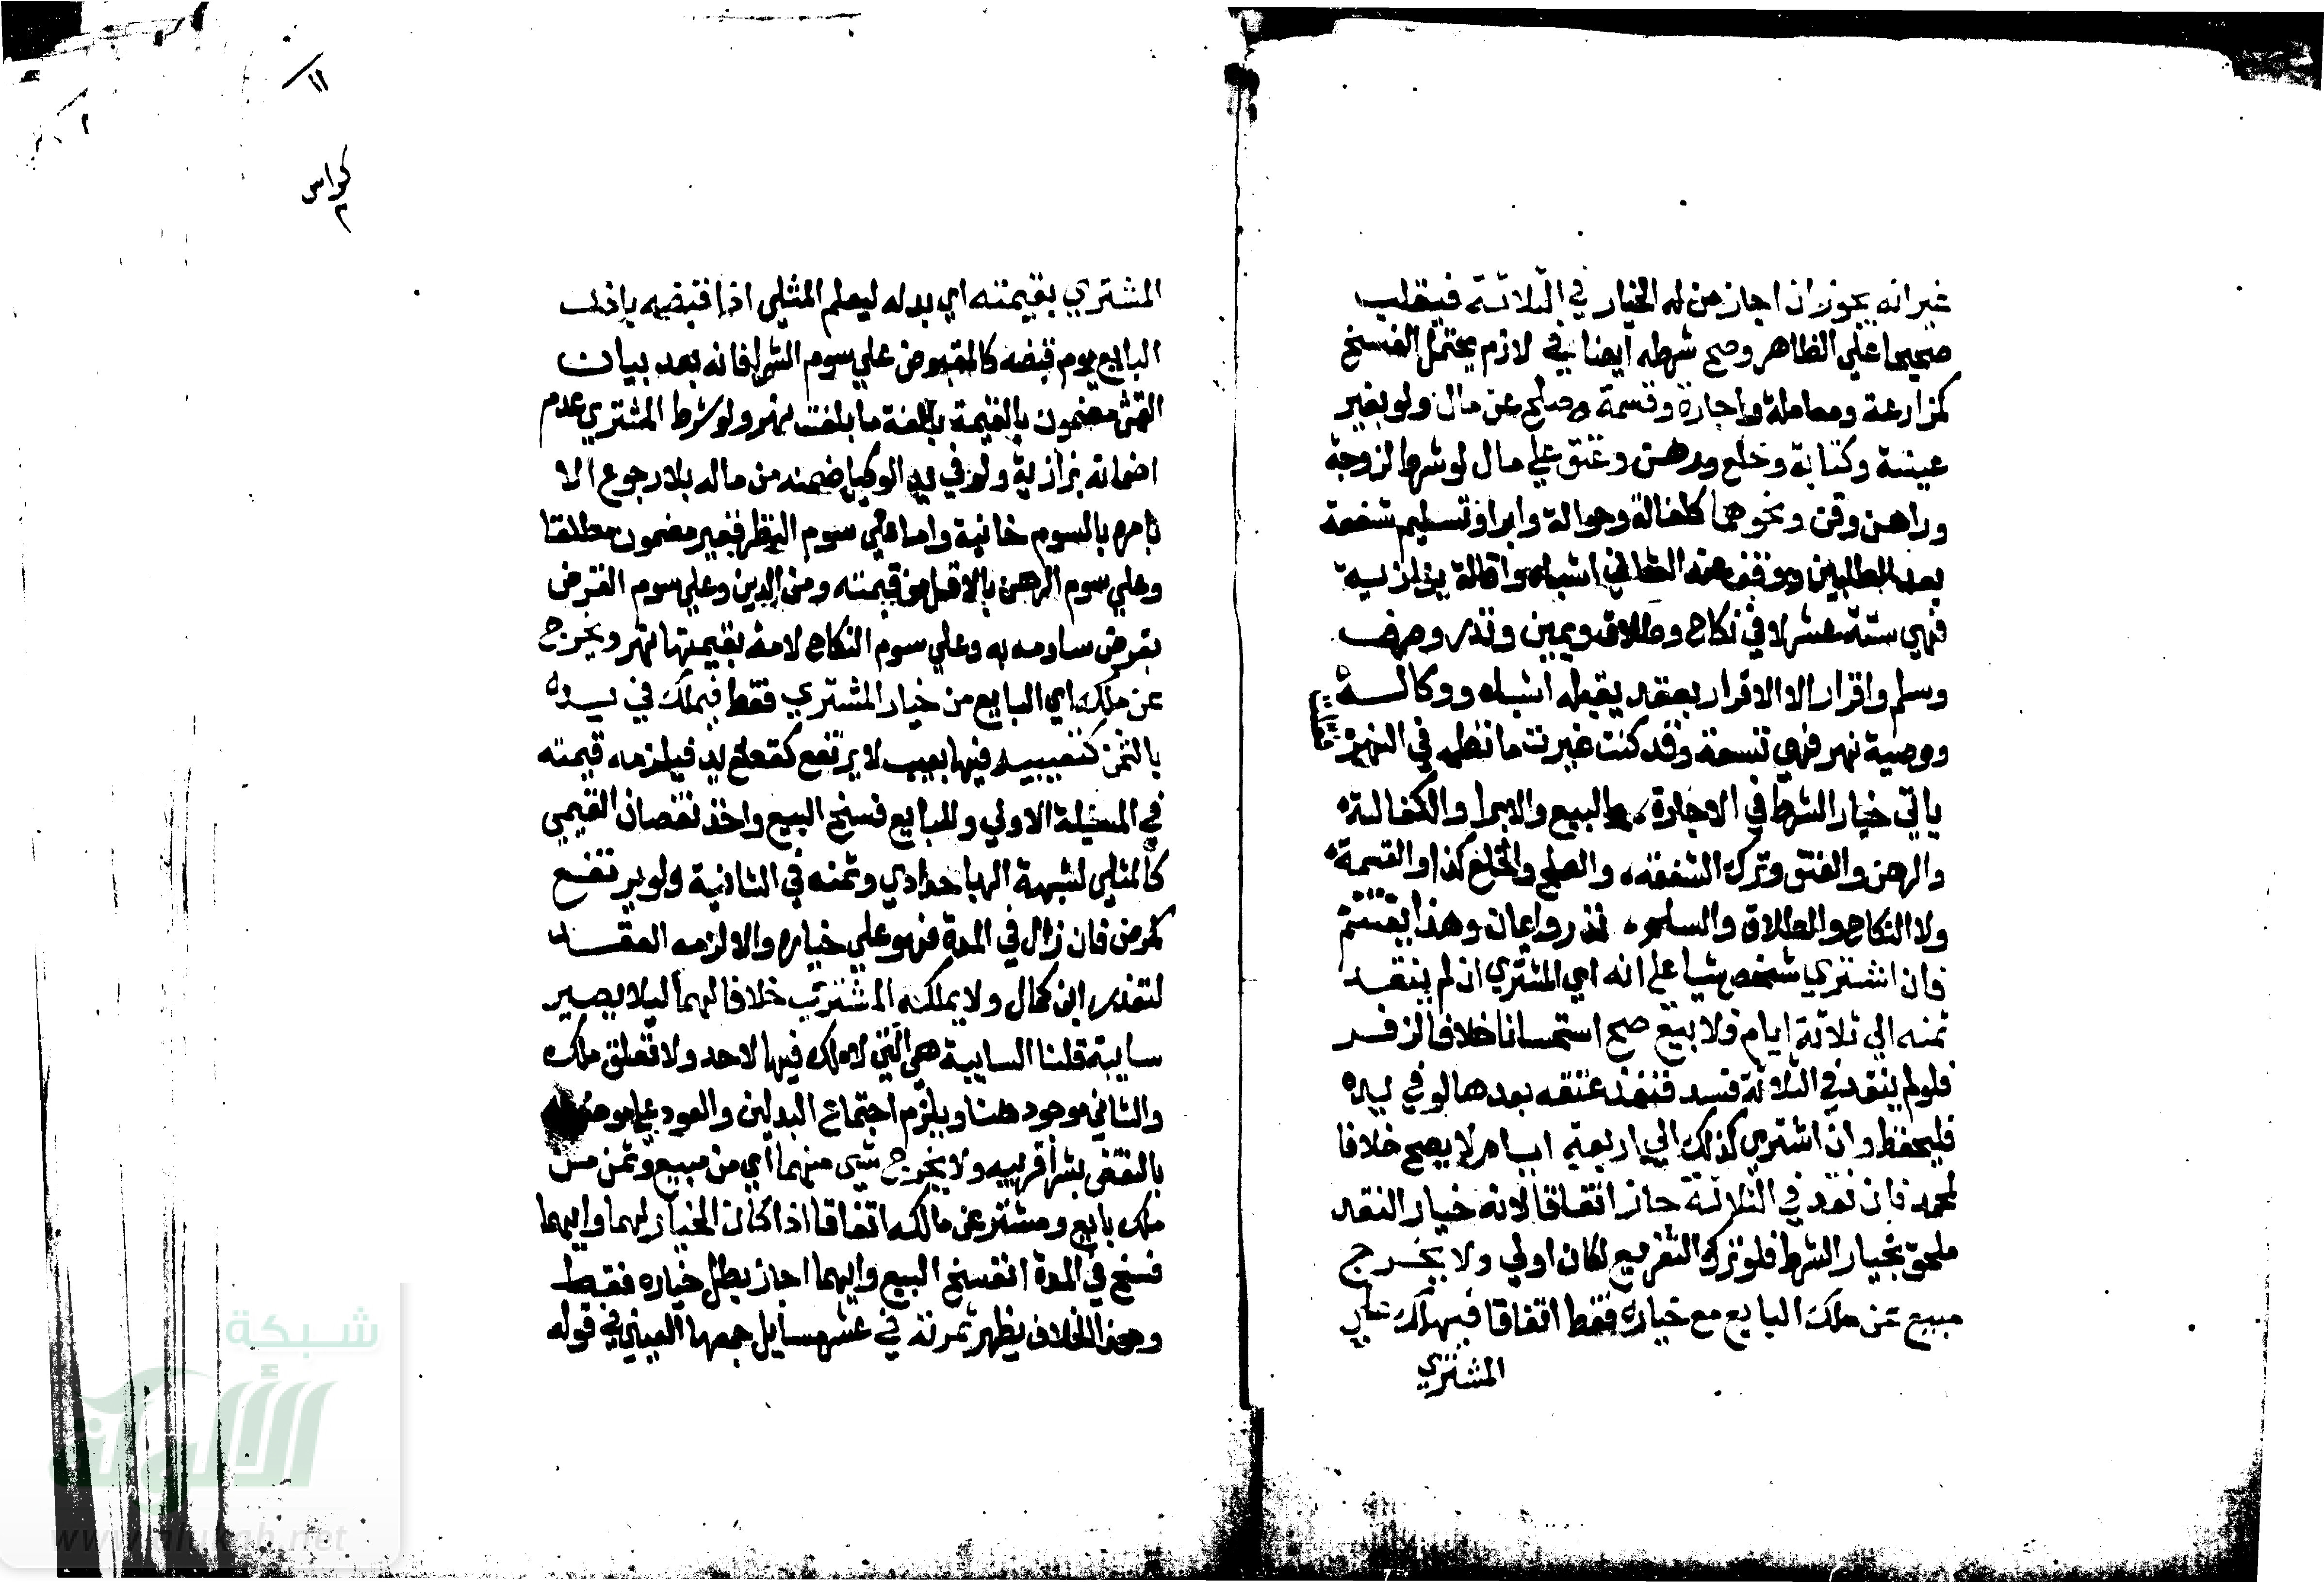 غير انه يجوز ان اجاز من له الخيار في الثلاثة فينقلب
صحيحا على الظاهر وصح شرطه ايضا في لازم يحتمل الفسخ
كمزارعة ومعاملة واجارة وقسمة وصلح عن مال ولو بغير
عينه وكتابة وخلع ورهن وعتق علي مال لو شرط لزوجة
وراهن وقن ونحوهما ككفالة وحوالة وابرا وتسليم شفعة
بعد الطلبين ووقف عند الثاني اشباه واقالة بزازية
فهي ستة عشر لا في نكاح وطلاق ويمين ونذر وصرف
وسلم واقرار الا الاقرار بعقد يقبله اشباه ووكالة
ووصية نهر فهي تسعة وقد كنت غيرت ما نظمه في النهر
ياتي خيار الشرط في الاجارة، والبيع والابرا والكفالة،
والرهن والعتق وترك الشفعة، والصلح والخلع كذا والقسمة،
ولا النكاح والطلاق والسلم، نذر وايمان وهذا يغتنم
فان اشتري شخص شيا على انه اي المشتري ان لم ينقد
ثمنه الي ثلاثة ايام فلا بيع صح استحسانا خلافا لزفر
فلو لم ينقد في الثلاثة فسد فنفذ عتقه بعدها لو في يده
فليحفظ وان اشتري كذلك الي اربعة ايام لا يصح خلافا
لمحمد فان نقد في الثلاثة جاز اتفاقا لانه خيار النقد
ملحق بخيار الشرط فلو ترك التفريع لكان اولي ولا يخرج
مبيع عن ملك البايع مع خياره فقط اتفاقا فيهلك علي
المشتري
١١
كراس
٢
المشتري بقيمته اي بدله ليعم المثلي اذا قبضه باذن
البايع يوم قبضه كالمقبوض علي سوم الشرا فانه بعد بيان
الثمن مضمون بالقيمة بالغة ما بلغت نهر ولو شرط المشتري عدم
ضمانه بزازية ولو في يد الوكيل ضمنه من ماله بلا رجوع الا
بامره بالسوم خانية واما علي سوم النظر فغير مضمون مطلقا
وعلي سوم الرهن بالاقل من قيمته ومن الدين وعلي سوم القرض
بقرض ساومه به وعلي سوم النكاح لامة بقيمتها نهر ويخرج
عن ملكه اي البايع من خيار المشتري فقط فيهلك في يده
بالثمن كتعيبه فيها بعيب لا يرتفع كقطع يد فيلزمه قيمته
في المسئلة الاولي وللبايع فسخ البيع واخذ نقصان القيمي
كالمثلي لشبهة الربا حدادي وثمنه في الثانية ولو يرتفع
كمرض فان زال في المدة فهو علي خياره والا لزمه العقد
لتعذر ابن كمال ولا يملكه المشتري خلافا لهما ليلا يصير
سايبة قلنا السايبة هي التي لا ملك فيها لاحد ولا تعلق ملك
والثاني موجود هنا ويلزم اجتماع البدلين والعود علي موضوعه
بالنقض بشرا قريبه ولا يخرج شي منهما اي من مبيع وثمن من
ملك بايع ومشتر عن مالكه اتفاقا اذا كان الخيار لهما وايهما
فسخ في المدة انفسخ البيع وايهما اجاز بطل خياره فقط
وهذا الخلاف يظهر ثمرته في عشر مسايل جمعها العيني في قوله
شبكة
الألوكة
www.alukah.net